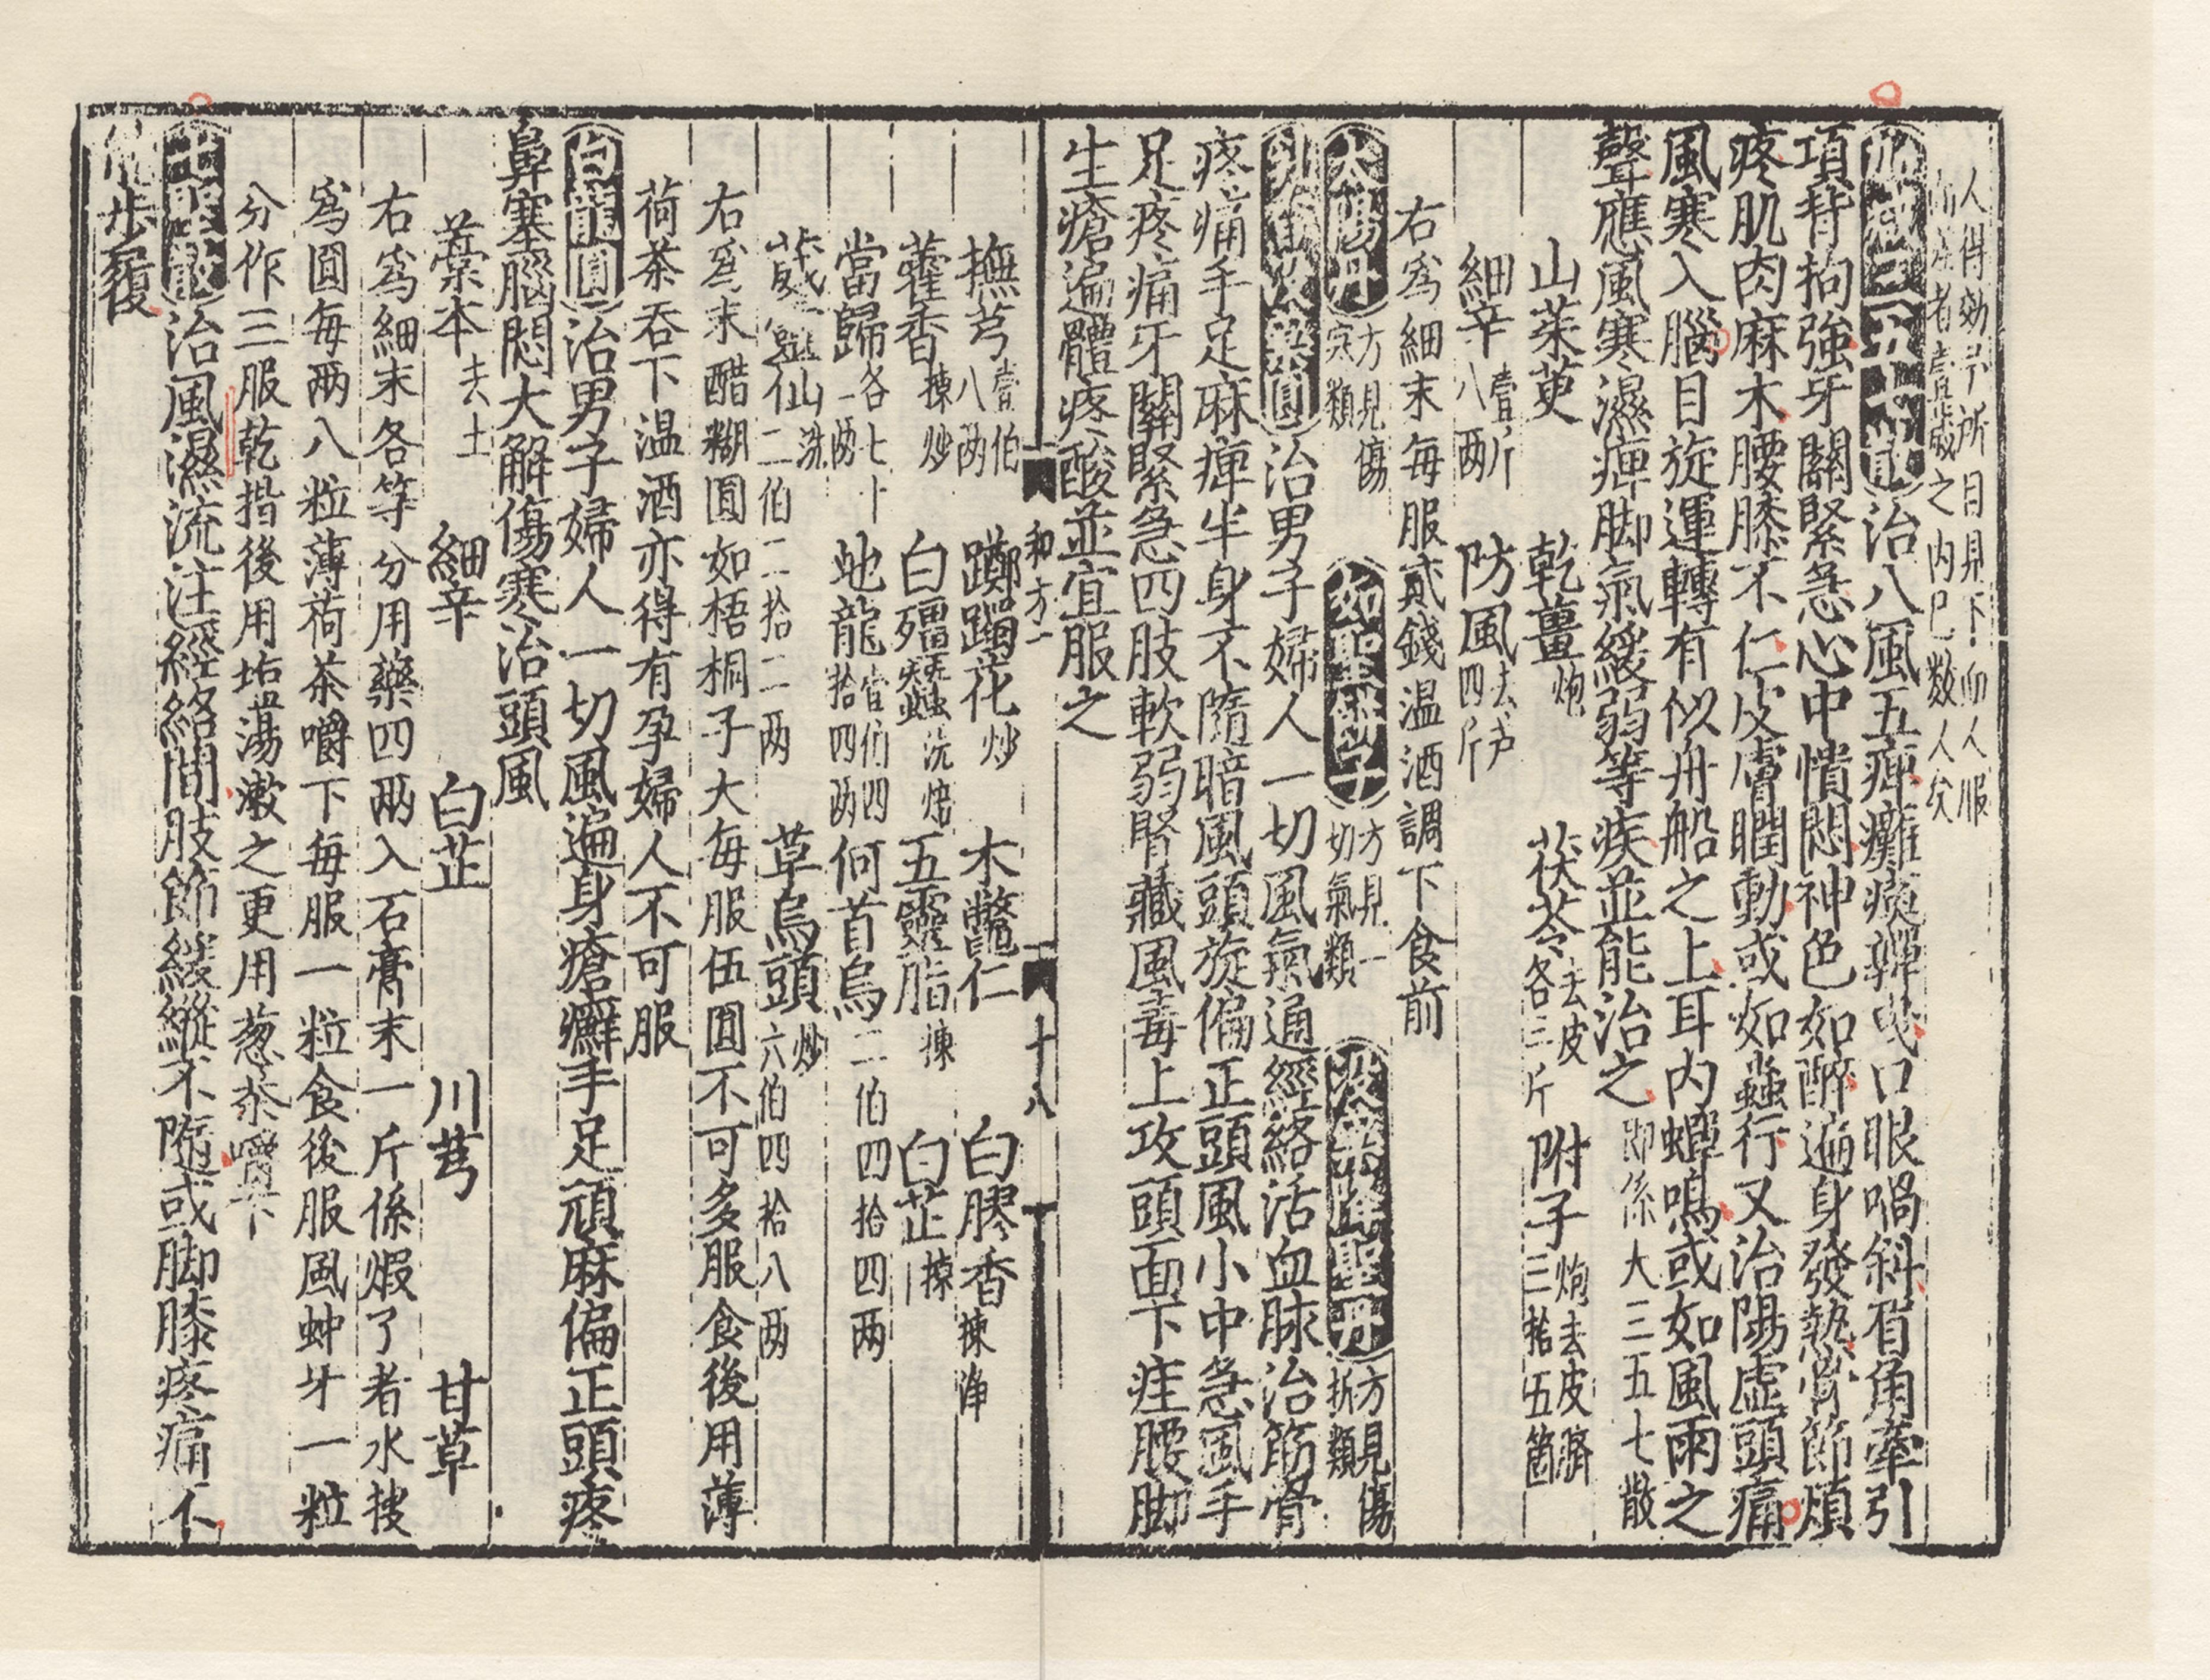 人得効于所目見下血人服
者壹歲之内已数人矣
治八風五痺癱瘓嚲曳口眼喎斜眉角牽引
項背拘強牙關緊急心中憒悶神色如醉遍身發熱骨節煩
疼肌肉麻木腰膝不仁皮膚瞤動或如蟲行又治陽虛頭痛
風寒入腦目旋運轉有似舟船之上耳内蟬鳴或如風雨之
聲應風寒濕痺脚氣緩弱等疾並能治之即係大三五七散
山茱萸 乾薑炮 茯苓去皮各三斤 附子炮去皮臍三拾伍箇
細辛壹斤八兩 防風去芦四斤
右為細末每服貳錢温酒調下食前
太陽丹方見傷寒類 如聖餅子方見一切氣類 没藥降聖丹方見傷折類
乳香没藥圓治男子婦人一切風氣通經絡活血脉治筋骨
疼痛手足麻痺半身不隨暗風頭旋偏正頭風小中急風手
足疼痛牙關緊急四肢軟弱腎藏風毒上攻頭面下疰腰脚
生瘡遍體疼酸並宜服之
和方一 十八
撫芎壹伯八兩 躑躅花炒 木鼈仁 白膠香揀淨
藿香揀炒 白殭蠶洗焙 五靈脂揀 白芷揀
當歸各七十一兩 地龍壹伯四拾四兩 何首烏二伯四拾四兩
葳靈仙洗二伯二拾二兩 草烏頭炒六伯四拾八兩
右為末醋糊圓如梧桐子大每服伍圓不可多服食後用薄
荷茶吞下温酒亦得有孕婦人不可服
白龍圓治男子婦人一切風遍身瘡癬手足頑麻偏正頭疼
鼻塞腦悶大解傷寒治頭風
藁本去土 細辛 白芷 川芎 甘草
右為細末各等分用藥四兩入石膏末一斤係煆了者水搜
為圓每兩八粒薄荷茶嚼下每服一粒食後服風蚛牙一粒
分作三服乾揩後用塩湯漱之更用葱茶嚼下
治風濕流注經絡間肢節緩縱不隨或脚膝疼痛不
能步履